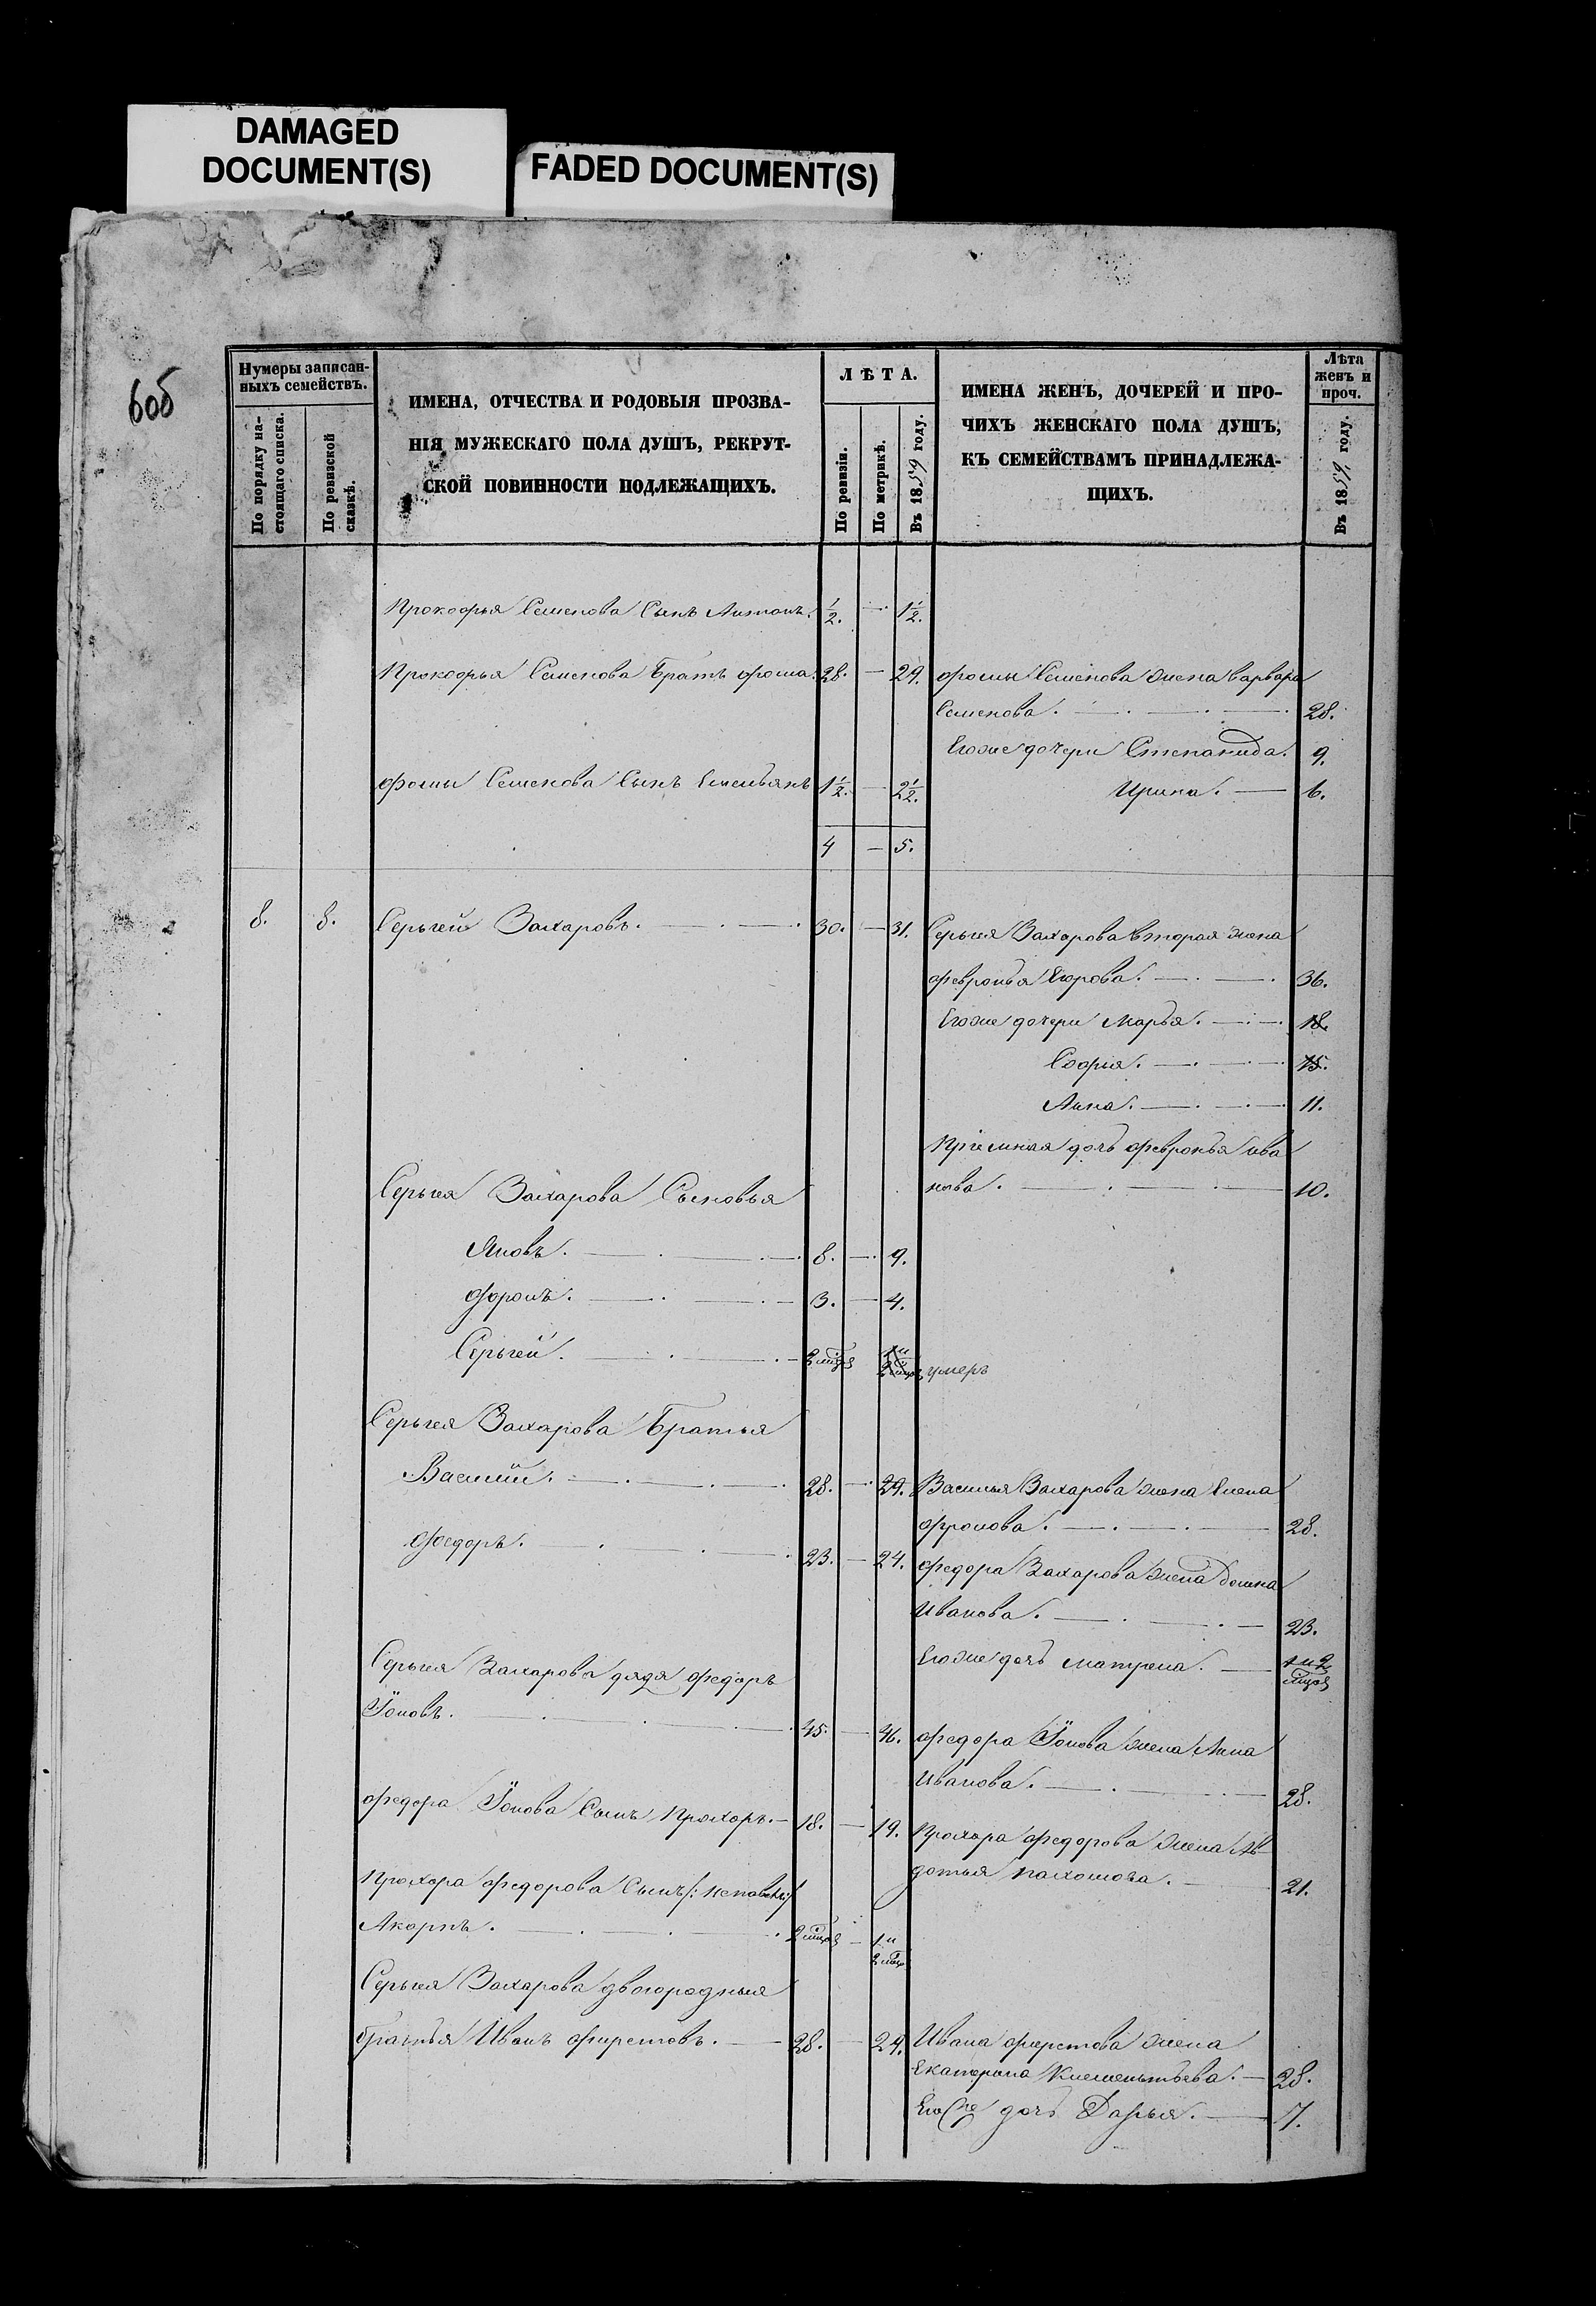 DAMAGED
DOCUMENT(S)
FADED DOCUMENT(S)
6об
Нумеры записан-
ныхъ семействъ.
По порядку на-
стоящаго списка.
По ревизской
сказкѣ.
ИМЕНА, ОТЧЕСТВА И РОДОВЫЯ ПРОЗВА-
НІЯ МУЖЕСКАГО ПОЛА ДУШЪ, РЕКРУТ-
СКОЙ ПОВИННОСТИ ПОДЛЕЖАЩИХЪ.
ЛѢТА.
По ревизіи.
По метрикѣ.
Въ 1859 году.
ИМЕНА ЖЕНЪ, ДОЧЕРЕЙ И ПРО-
ЧИХЪ ЖЕНСКАГО ПОЛА ДУШЪ,
КЪ СЕМЕЙСТВАМЪ ПРИНАДЛЕЖА-
ЩИХЪ.
Лѣта
женъ и
проч.
Въ 1859 году.
Прокофья Семенова Сынъ Антонъ. ½. — 1½.
Прокофья Семенова Братъ фома. 28. — 29. фомы Семенова жена варвара
Семенова. 28.
Егоже дочери Степанида. 9.
фомы Семенова Сынъ Емельянъ 1½. — 2½. Ирина. — 6.
4 — 5.
8. 8. Сергѣй Захаровъ. 30. — 31. Сергѣя Захарова вторая жена
февронья Егорова. 36.
Егоже дочери Марья. 18.
Софья. 15.
Анна. 11.
Пріемная дочь февронья ива
нова. 10.
Сергѣя Захарова Сыновья
Яковъ. 8. — 9.
фролъ. 3. — 4.
Сергѣй. 2 мѣсяц 1 и 2 мѣсяц умеръ
Сергѣя Захарова Братья
Василій. 28. — 29. Василья Захарова жена Елена
фролова. 28.
федоръ. 23. — 24. федора Захарова жена Домна
Иванова. 23.
Егоже дочь матрена. 1 и 2
мѣсяц
Сергѣя Захарова дядя федоръ
Іоновъ. 45. — 46. федора Іонова жена Анна
Иванова. 28.
федора Іонова Сынъ Прохоръ. — 18. — 19. Прохора федорова жена Ав
дотья пахомова. 21.
Прохора федорова Сынъ
2 мѣсяц — 1 и
2 мѣсяц
Сергѣя Захарова двоюродныя
братья Иванъ 28. — 29. Ивана жена
Екатерина Клементьева. — 28.
Егоже дочь Дарья. 7.